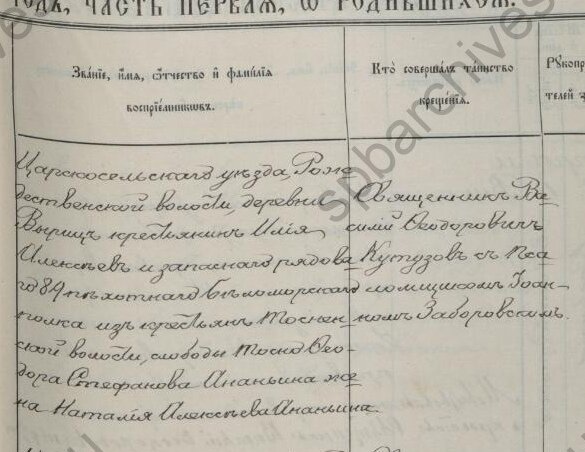 годъ, часть первая, ѡ родившихся.
Званіе, имя, отчество и фамилія
воспріемниковъ.
Кто совершалъ таинство
крещенія.
Рукопри
телей з
Царскосельскаго уѣзда, Рожде-
дественской волости, деревни
Вырицъ крестьянинъ Илія
Алексѣевъ и запаснаго рядова-
го 89 пѣхотнаго Бѣломорскаго
полка изъ крестьянъ Тоснен-
ской волости, слободы Тосно Ѳео-
дора Стефанова Ананьина же-
на Наталія Алексѣева Ананьина.
Священникъ Ва-
силій Ѳеодоровичъ
Кутузовъ съ Пса-
ломщикомъ Іоан-
номъ Заборовскимъ.
spbarchives